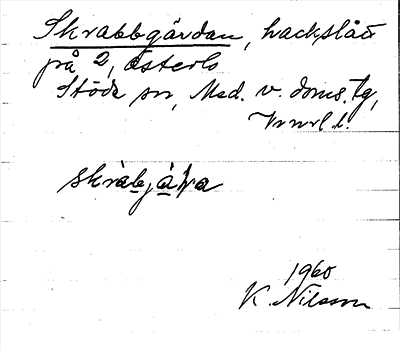 Skrabbgärdan, hackslått
på 2, Österlo
Stöde sn, Med. v. doms. tg,
Vnrl. l.
skrabjäḷa
1960
K. Nilsson